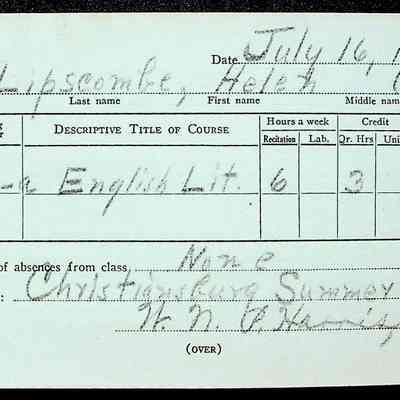 Date July 16, 1
Lipscombe, Helen
Last name First name Middle nam
Descriptive Title of Course Hours a week Credit
Recitation Lab. Qr. Hrs Uni
-a English Lit. 6 3
of absences from class None
: Christiansburg Summer
W. N. P. Harris
(OVER)